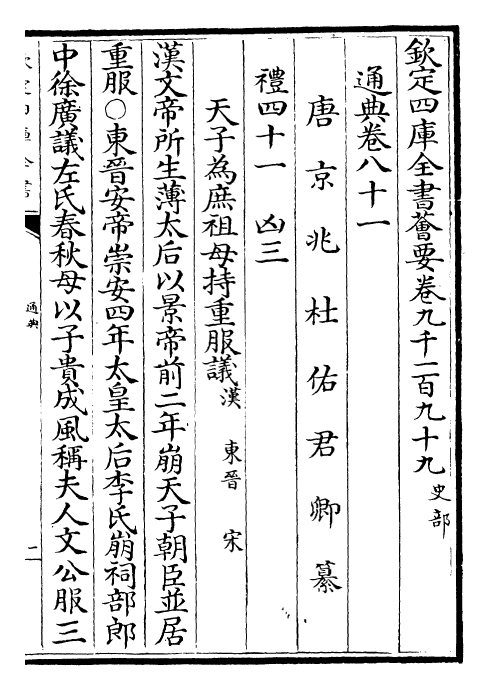 欽定四庫全書薈要卷九千二百九十九 史部
通典卷八十一
唐京兆杜佑君卿纂
禮四十一 凶三
天子為庶祖母持重服議 漢 東晉 宋
漢文帝所生薄太后以景帝前二年崩天子朝臣並居
重服○東晉安帝崇安四年太皇太后李氏崩祠部郎
中徐廣議左氏春秋母以子貴成風稱夫人文公服三
通典
二